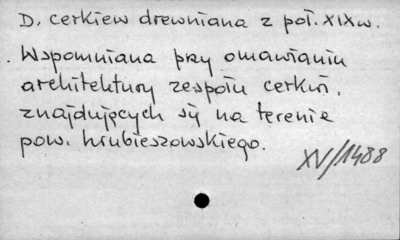 D. cerkiew drewniana z poł. XIX w.
Wspomniana przy omawianiu
architektury zespołu cerkwi,
znajdujących się na terenie
pow. hrubieszowskiego.
XV/1488